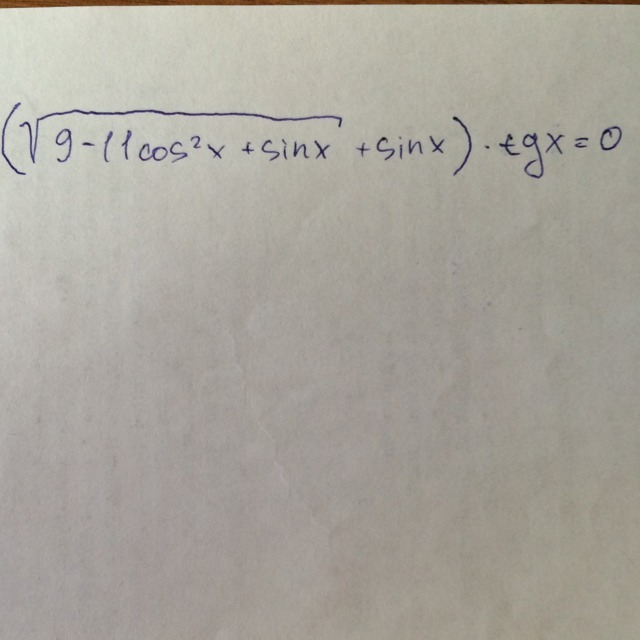 (√9-11cos²x +sinx +sinx)·tgx=0